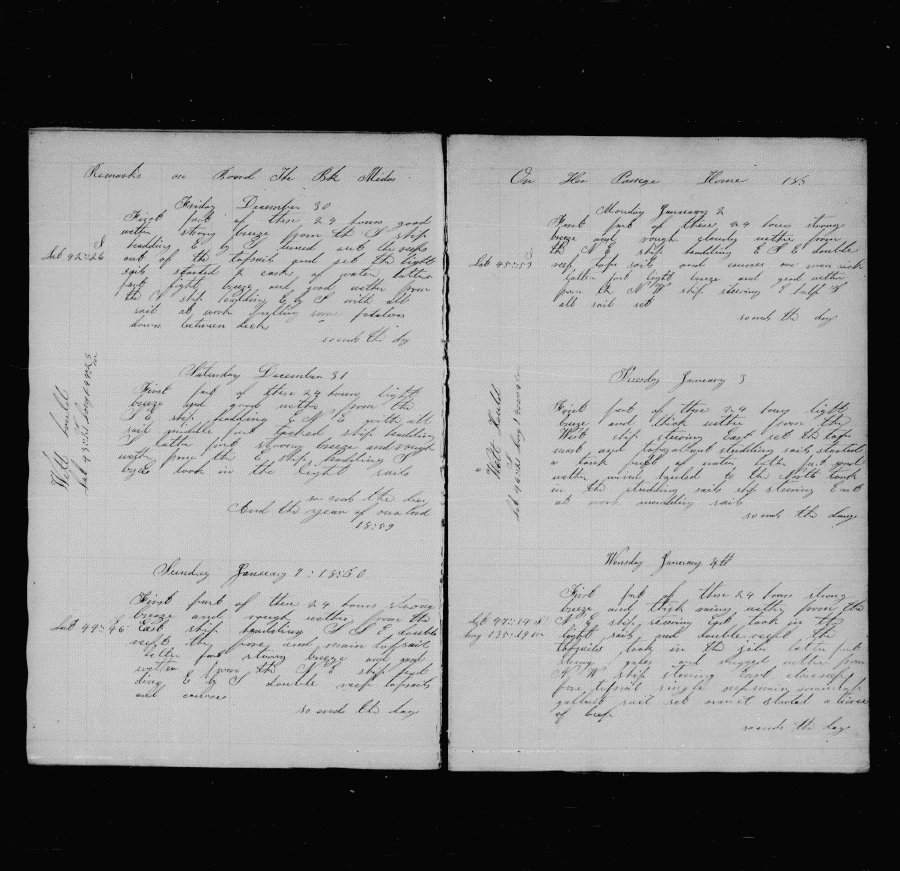 Remarks on Board The Bk Midas
Friday December 30
First part of these 24 hours good
wether strong breeze from the S ship
headding E by S turned out the reefs
out of the topsail and set the light
sails started 2 casks of water latter
part light breeze and good wether from
the S ship headding E by S with all
sail at work picking some potatoes
down between deck
so ends the day
Lat 42=26
S
Saturday December 31
First part of these 24 hours light
breeze and good wether from the
S E ship headding E N E with all
sail middle part tacked ship headding
S latter part strong breeze and rough
wether from the E ship headding S
took in the light sails
so ends the day
And the year of our lord
1859
Sunday January 1: 1860
First part of these 24 hours strong
breeze and rough wether from the
East ship headding S S E double
reeft the fore and main topsail
latter part strong breeze and good
wether from the N E ship hedd
ding E by S double reef topsails
and courses
so ends the day
Lat 44=46
On Her Passage Home 185
Monday January 2
First part of these 24 hours strong
breeze and rough cloudy wether from
the N E ship headding E S E double
reef topsails and courses one man sick
latter part light breeze and good wether
from the N W ship steering E half S
all sail set
so ends the day
Lat 45=53
Tuesday January 3
First part of these 24 hours light
breeze and thick wether from the
West ship steering East set the top
mast and topgallant studding sails started
a cask of water latter part good
wether wind hauled to the North took
in the studding sails ship steering East
at work mending sails
so ends the day
Wensday January 4th
First part of these 24 hours strong
breeze and thick rainy wether from the
N E ship steering East took in the
light sails and double reeft the
topsails took in the jib latter part
strong gales and rugged wether from
N W ship steering East close reef
fore topsail single reef main
gallant sail set over it started a tierce
of beef
so ends the day
Lat 47=14 S